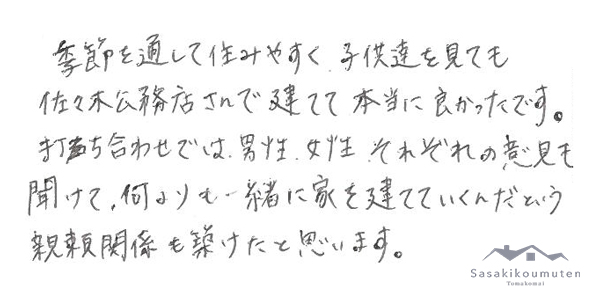 季節を通して住みやすく、子供達を見ても
佐々木公務店さんで建てて本当に良かったです。
打ち合わせでは、男性、女性それぞれの意見も
聞けて、何よりも一緒に家を建てていくんだという
親頼関係も築けたと思います。
Sasakikoumuten
Tomakomai